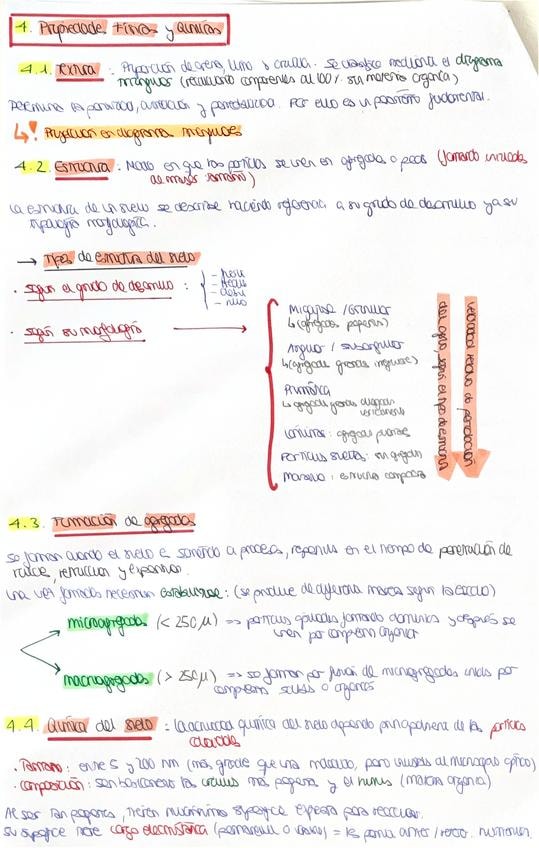 4. Propiedades Físicas y Químicas
4.1. Textura : Proporción de arena, limo y arcilla. Se clasifica mediante el diagrama
triangular (recalculando componentes al 100% sin materia orgánica)
Determina la porosidad, aireación y permeabilidad. Por ello es un parámetro fundamental.
↳! Proyección en diagramas triangulares
4.2. Estructura : Modo en que las partículas se unen en agregados o peds (formando unidades
de mayor tamaño)
La estructura de un suelo se describe haciendo referencia a su grado de desarrollo y a su
tipología morfológica.
→ Tipos de estructura del suelo
· según el grado de desarrollo :
- débil
- nulo
· según su morfología →
Migajosa / Granular
↳ (agregados pequeños)
Angular / subangular
↳ (agregados grandes irregulares)
Prismática
↳ agregados grandes alargados verticalmente
Laminar : agregados planares
Partículas sueltas : sin agregación
Masiva : estructura compacta
velocidad relativa de penetración
del agua, según el tipo de estructura
4.3. Formación de agregados
Se forman cuando el suelo es sometido a procesos, repetidos en el tiempo de penetración de
raíces, retracción y expansión.
Una vez formados necesitan estabilizarse : (se produce de diferente manera según la escala)
microagregados (< 250 μ) ⇒ partículas apiladas formando dominios y después se
unen por compuestos orgánicos
macroagregados (> 250 μ) ⇒ se forman por fusión de microagregados unidos por
compuestos orgánicos
4.4. Química del suelo : La actividad química del suelo depende principalmente de las partículas
coloidales
· Tamaño : entre 5 y 200 nm (más grande que una molécula, pero invisible al microscopio óptico)
· Composición : son básicamente las arcillas más pequeñas y el humus (materia orgánica)
Al ser tan pequeños, tienen muchísima superficie específica para reaccionar.
Su superficie tiene carga electrostática (permanente o variable) ⇒ les permite atraer / retener nutrientes.